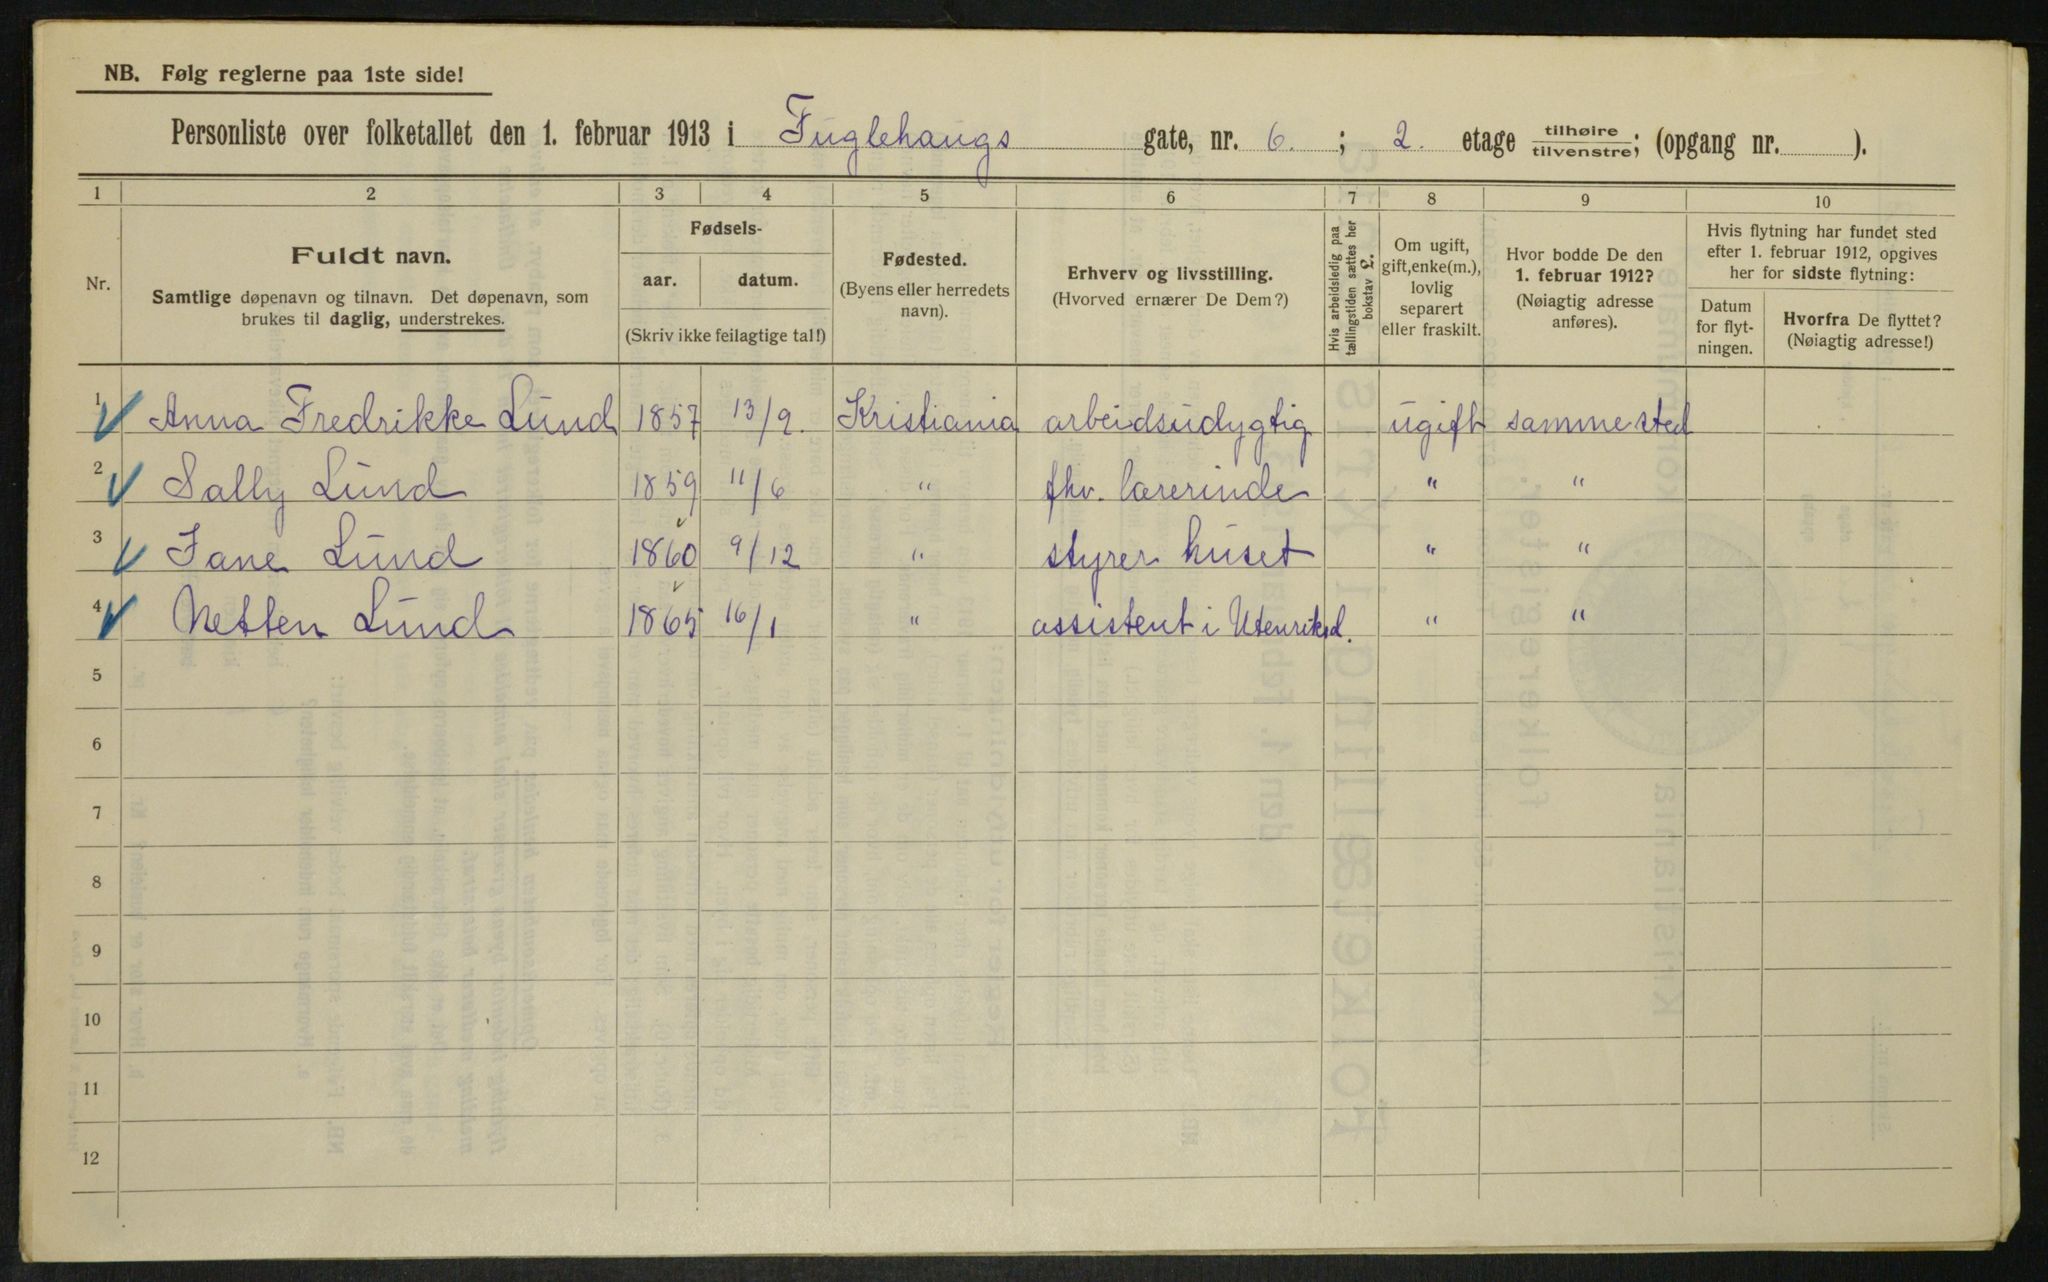 NB. Følg reglerne paa 1ste side!
Personliste over folketallet den 1. februar 1913 i Fuglehaugs gate, nr. 6. ; 2. etage tilhøire/tilvenstre; (opgang nr. ).
1 2 3 4 5 6 7 8 9 10
Nr.
Fuldt navn.
Samtlige døpenavn og tilnavn. Det døpenavn, som
brukes til daglig, understrekes.
Fødsels-
aar. datum.
(Skriv ikke feilagtige tal!)
Fødested.
(Byens eller herredets
navn).
Erhverv og livsstilling.
(Hvorved ernærer De Dem?)
Hvis arbeidsledig paa
tællingstiden sættes her
bokstav £.
Om ugift,
gift, enke(m.),
lovlig
separert
eller fraskilt.
Hvor bodde De den
1. februar 1912?
(Nøiagtig adresse
anføres).
Hvis flytning har fundet sted
efter 1. februar 1912, opgives
her for sidste flytning:
Datum
for flyt-
ningen.
Hvorfra De flyttet?
(Nøiagtig adresse!)
1 Anna Fredrikke Lund 1857 13/9. Kristiania arbeidsudygtig ugift samme sted
2 Sally Lund 1859 11/6 " fhv. lærerinde " "
3 Jane Lund 1860 9/12 " styrer huset " "
4 Netten Lund 1865 16/1 " assistent i Utenriksd. " "
5
6
7
8
9
10
11
12